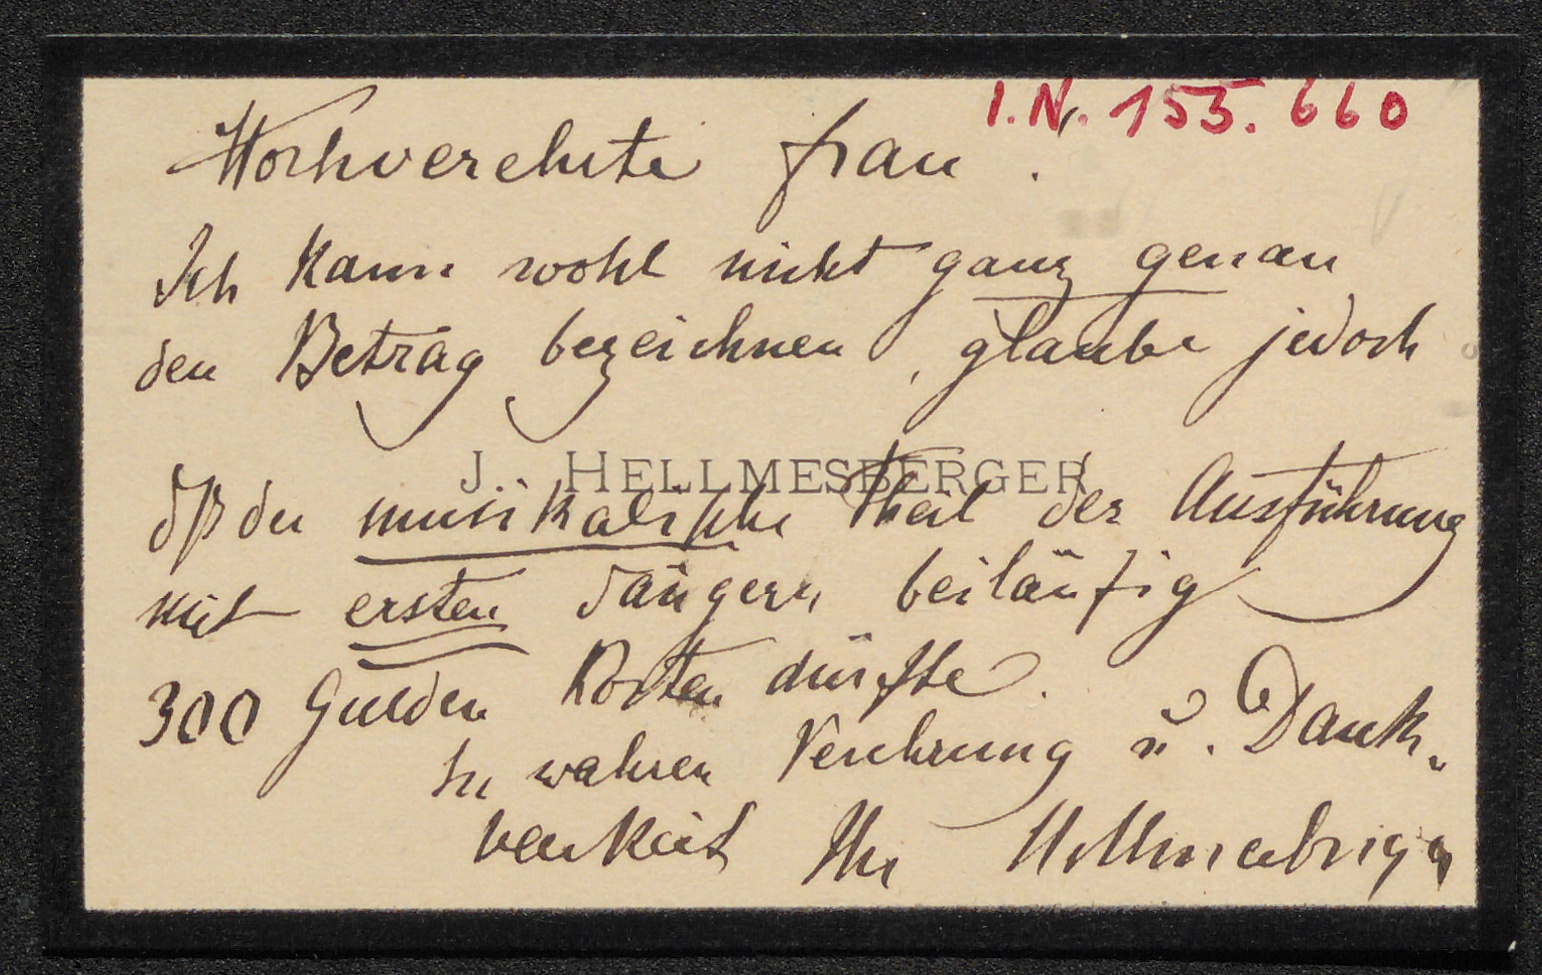 I.N. 153.660
Hochverehrte Frau.
Ich kann wohl nicht ganz genau
den Betrag bezeichnen, glaube jedoch
J. HELLMESBERGER
dß der musikalische Theil der Ausführung
mit ersten Sängern beiläufig
300 Gulden kosten dürfte.
In wahrer Verehrung u. Dank-
barkeit Ihr Hellmesberger